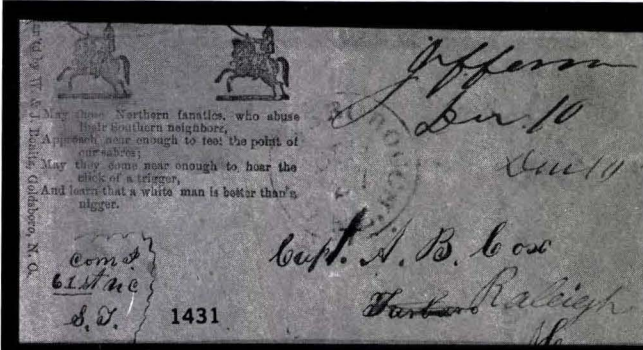 May those Northern fanatics, who abuse
their Southern neighbors,
Approach near enough to feel the point of
our sabres;
May they come near enough to hear the
click of a trigger,
And learn that a white man is better than a
nigger.
Goldsboro, N. C.
Jefferson
Dec 10
Dec 10
Capt. A. B. Cox
Raleigh
Com I
61st NC
S. T.
1431